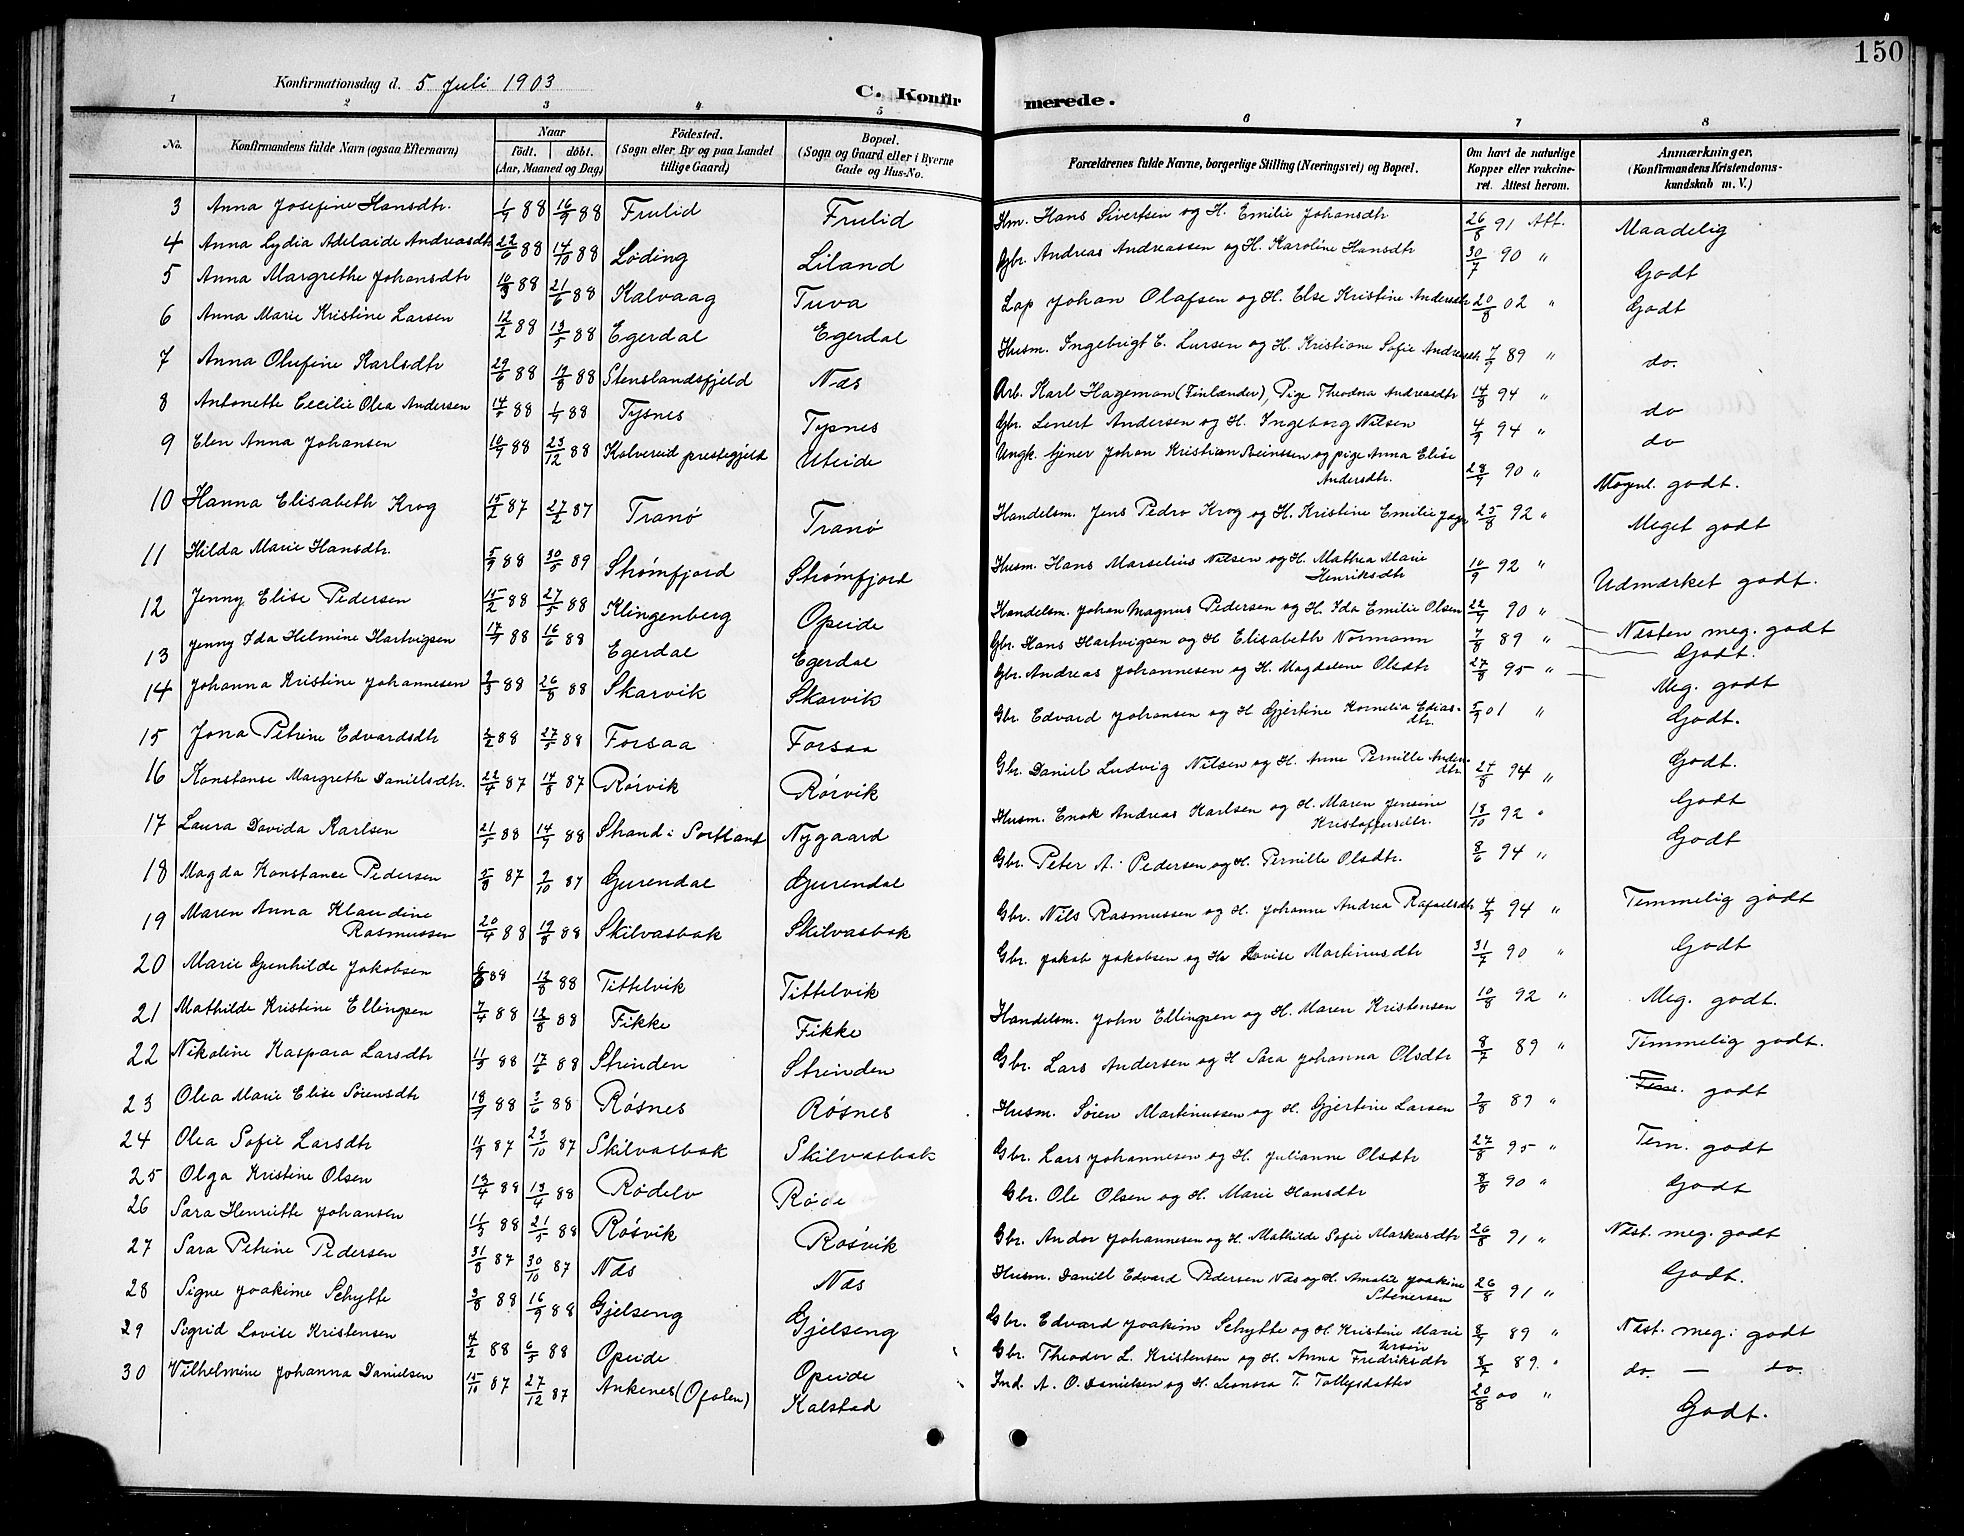 150
Konfirmationsdag d. 5 Juli 1903
C. Konfirmerede.
1 2 3 4 5 6 7 8
No. Konfirmandens fulde Navn (ogsaa Efternavn) Naar födt. döbt. (Aar, Maaned og Dag) Födested. (Sogn eller By og paa Landet tillige Gaard) Bopæl. (Sogn og Gaard eller i Byerne Gade og Hus-No. Forældrenes fulde Navne, borgerlige Stilling (Næringsvei) og Bopæl. Om havt de naturlige Kopper eller vakcineret. Attest herom. Anmærkninger, (Konfirmandens Kristendomskundskab m. V.)
3 Anna Josefine Hansdtr. 88 16/9 88 Frulid Frulid Hm. Hans Sivertsen og H. Emilie Johansdtr 26/8 91 Att. Maadelig
4 Anna Lydia Adelaide Andreasdtr 22/6 88 14/10 88 Løding Liland Gbr. Andreas Andreassen og H. Karoline Hansdtr 30/7 90 " Godt
5 Anna Margrethe Johansdtr 88 21/6 88 Kalvaag Tuva Lap Johan Olafsen og H. Else Kristine Andersdtr 20/8 02 " Godt
6 Anna Marie Kristine Larsen 12/2 88 13/5 88 Egerdal Egerdal Husm. Ingebrigt E. Larsen og H. Kristiane Sofie Andreasdtr 7/9 89 " do.
7 Anna Olufine Karlsdtr 29/6 88 19/8 88 Stenslandsfjeld Næs Arb. Karl Hageman (Finlænder), Pige Theodna Andreasdtr 14/8 94 " do
8 Antonette Cecilie Olea Andersen 14/5 88 88 Tysnes Tysnes Gbr. Lenert Andersen og H. Ingeborg Nilsen 4/9 94 " do
9 Elen Anna Johansen 10/9 88 23/12 88 Kolvereid prestegjeld Uteide Ungk. tjener Johan Kristian Beinssen og pige Anna Elise Andersdtr. 28/9 90 " Nogenl. godt.
10 Hanna Elisabeth Krog 15/2 87 27/2 87 Tranø Tranø Handelsm. Jens Pedro Krog og H. Kristine Emilie 25/8 92 " Meget godt
11 Hilda Marie Hansdtr. 5/9 88 30/5 89 Strømfjord Strømfjord Husm. Hans Marselius Nilsen og H. Mathea Marie Henriksdtr 10/9 92 " Udmærket godt.
12 Jenny Elise Pedersen 15/2 88 27/5 88 Klingenberg Opeide Handelsm. Johan Magnus Pedersen og H. Ida Emilie Olsen 22/9 90 " Næsten meg. godt
13 Jenny Ida Helmine Hartvigsen 88 16/6 88 Egerdal Egerdal Gbr. Hans Hartvigsen og H Elisabeth Normann 7/8 89 " Godt.
14 Johanna Kristine Johannesen 2/3 88 26/8 88 Skarvik Skarvik Gbr. Andreas Johannesen og H. Magdalene Olsdtr 27/8 95 " Meg. godt
15 Jona Petrine Edvardsdtr 88 27/5 88 Forsaa Forsaa Gbr. Edvard Johansen og H Gjertine Kornelia Ediasdtr. 5/9 01 " Godt.
16 Konstanse Margrethe Danielsdtr. 22/4 87 14/8 87 Rørvik Rørvik Gbr. Daniel Ludvig Nilsen og H. Anne Pernille Andersdtr. 94 " Godt.
17 Laura Davida Karlsen 21/5 88 14/9 88 Strand i Sortland Nygaard Husm. Enok Andreas Karlsen og H. Maren Jensine Kristoffersdtr. 13/10 92 " Godt
18 Magda Konstance Pedersen 5/8 87 2/10 87 Gurendal Gurendal Gbr. Peter A. Pedersen og H. Pernille Olsdtr. 8/6 94 " Godt
19 Maren Anna Klaudine Rasmussen 20/4 88 19/8 88 Skilvasbak Skilvasbak Gbr. Nils Rasmussen og H. Johanne Andrea Rafaelsdtr 4/9 94 " Temmelig godt
20 Marie Gunhilde Jakobsen 88 12/8 88 Tittelvik Tittelvik Gbr. Jakob Jakobsen og H. Lovise Martinusdtr 31/7 90 " Godt
21 Mathilde Kristine Ellingsen 7/4 88 12/8 88 Fikke Fikke Handelsm. John Ellingsen og H. Maren Kristensen 10/8 92 " Meg. godt.
22 Nikoline Kaspara Larsdtr 11/3 88 17/6 88 Strinden Strinden Gbr. Lars Andersen og H Sara Johanna Olsdtr 8/7 89 " Temmelig godt.
23 Olea Marie Elise Sørensdtr 88 3/6 88 Røsnes Røsnes Husm. Søren Martinussen og H. Gjertine Larsen 2/8 89 " godt
24 Olea Sofie Larsdtr 11/9 87 23/10 87 Skilvasbak Skilvasbak Gbr. Lars Johannesen og H. Julianne Olsdtr 27/8 95 " Tem. godt
25 Olga Kristine Olsen 88 88 Rødelv Røde Gbr. Ole Olsen og H. Marie Hansdtr 8/8 90 " Godt
26 Sara Henriette Johansen 11/3 88 21/5 88 Røsvik Røsvik Gbr. Andor Johannesen og H. Mathilde Sofie Markusdtr 26/8 91 " Næst. meg. godt
27 Sara Petrine Pedersen 31/8 87 30/10 87 Næs Næs Husm. Daniel Edvard Pedersen Næs og H. Amalie Joakine Stenersen 26/8 91 " Godt.
28 Signe Joakime Schytte 3/8 88 16/9 88 Gjelseng Gjelseng Gbr. Edvard Joakim Schytte og H Kristine Marie Ursin 8/9 89 " Næst. meg. godt
29 Sigrid Lovise Kristensen 88 6/5 88 Opeide Opeide Gbr. Theodor L. Kristensen og H. Anna Fredriksdtr 89 " do. — do.
30 Vilhelmine Johanna Danielsen 15/10 87 27/12 87 Ankenes (Ofoten) Kalstad Ind. A. O. Danielsen og H. Leonora T. Tollefsdatter 20/8 00 " Godt.